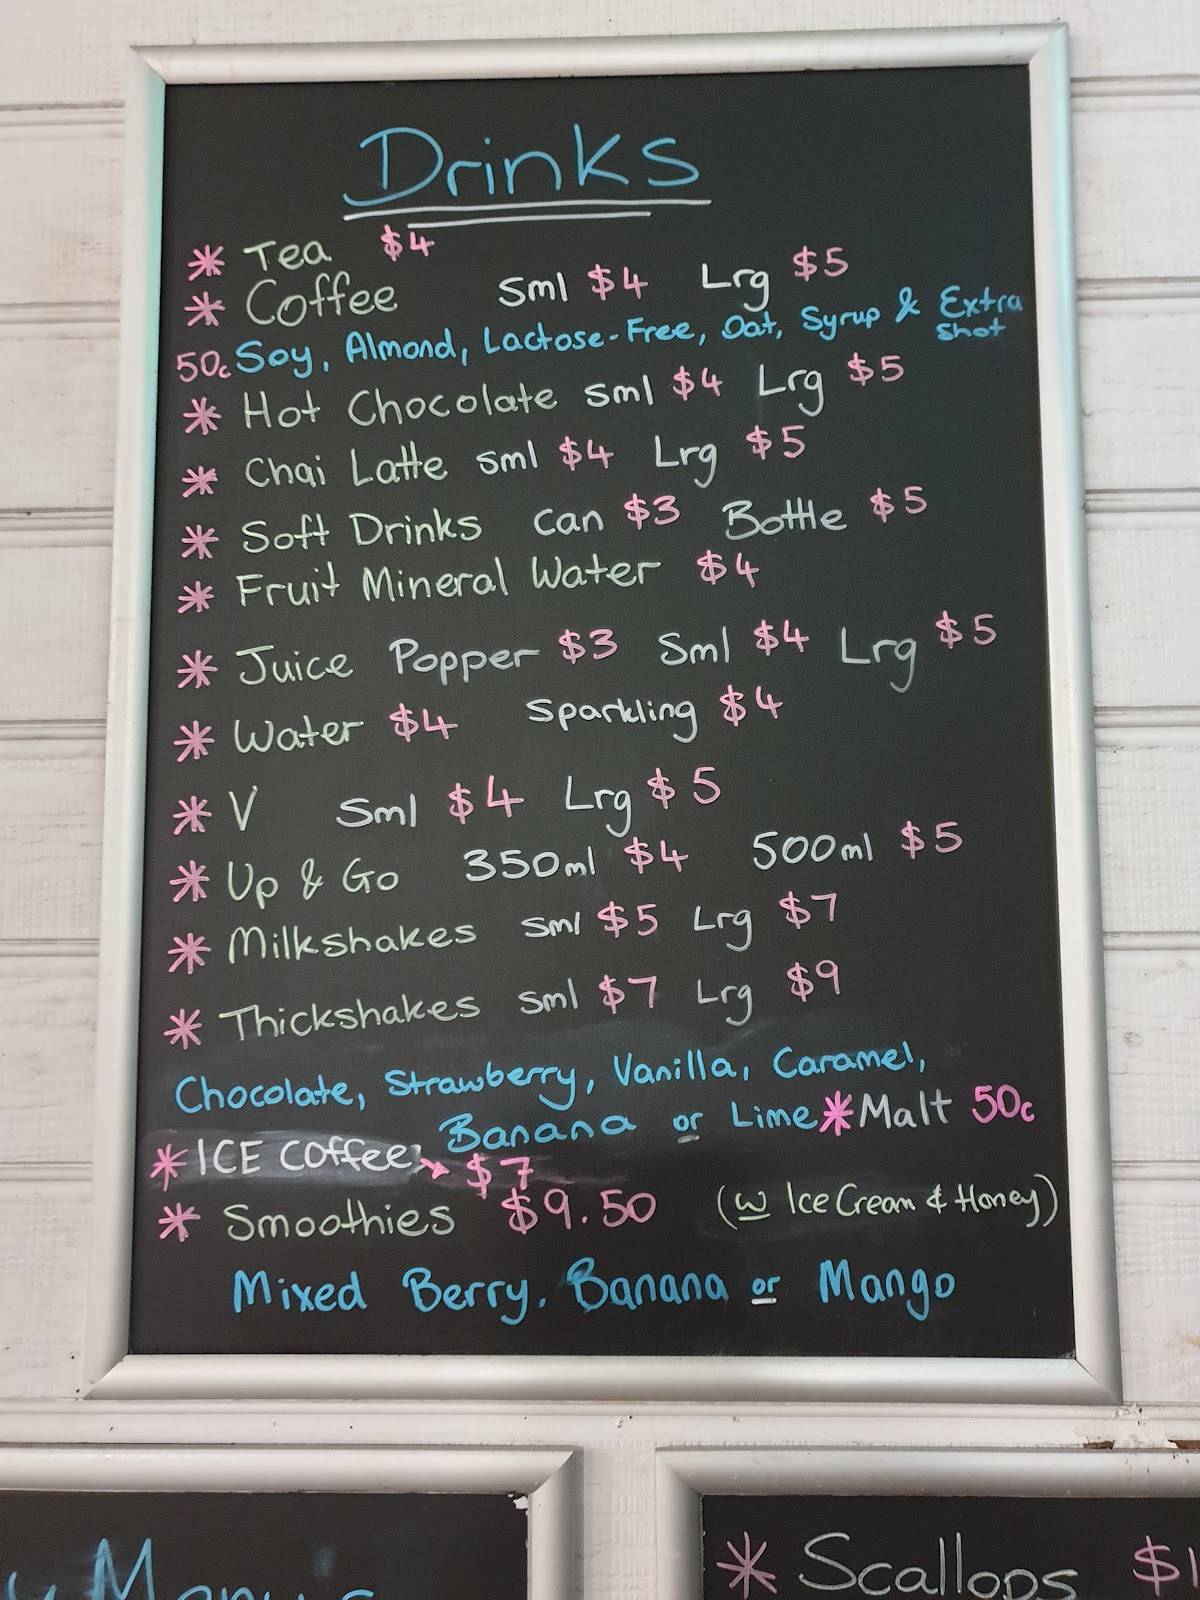 Drinks
* Tea $4
* Coffee Sml $4 Lrg $5
50c Soy, Almond, Lactose-Free, Oat, Syrup & Extra Shot
* Hot Chocolate Sml $4 Lrg $5
* Chai Latte Sml $4 Lrg $5
* Soft Drinks Can $3 Bottle $5
* Fruit Mineral Water $4
* Juice Popper $3 Sml $4 Lrg $5
* Water $4 Sparkling $4
* V Sml $4 Lrg $5
* Up & Go 350ml $4 500ml $5
* Milkshakes Sml $5 Lrg $7
* Thickshakes Sml $7 Lrg $9
Chocolate, Strawberry, Vanilla, Caramel,
Banana or Lime * Malt 50c
* ICE Coffee $7
* Smoothies $9.50 (w Ice Cream & Honey)
Mixed Berry, Banana or Mango
* Scallops